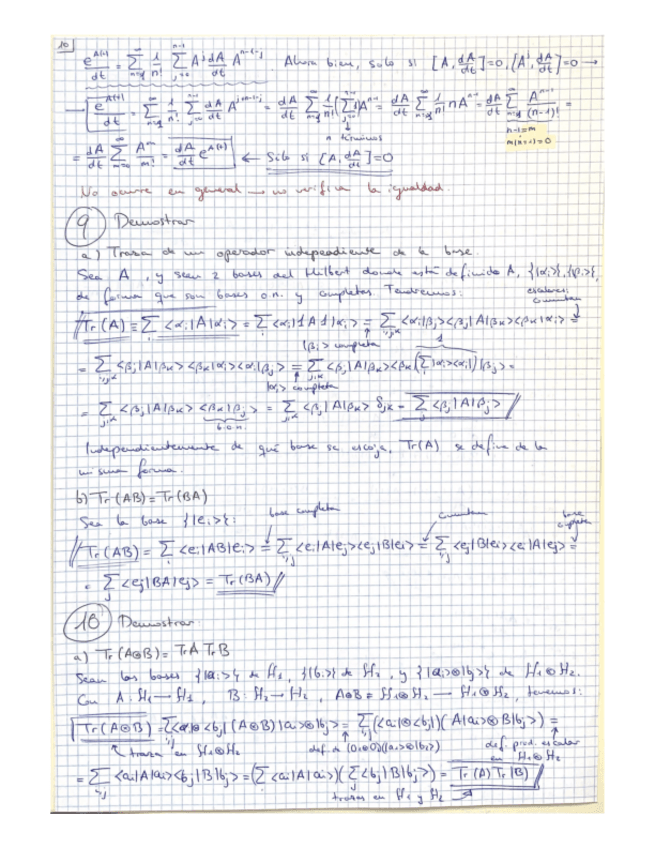 10
e^{A(t)}/dt = Σ_{n=1}^∞ 1/n! Σ_{j=0}^{n-1} A^j dA/dt A^{n-1-j}. Ahora bien, solo si [A, dA/dt]=0, [A^j, dA/dt]=0 →
→ e^{A(t)}/dt = Σ_{n=1}^∞ 1/n! Σ_{j=0}^{n-1} dA/dt A^{j+n-1-j} = dA/dt Σ_{n=1}^∞ 1/n! (Σ_{j=0}^{n-1} 1) A^{n-1} = dA/dt Σ_{n=1}^∞ 1/n! n A^{n-1} = dA/dt Σ_{n=1}^∞ A^{n-1}/(n-1)! =
n términos
n-1=m
m(n=1)=0
= dA/dt Σ_{m=0}^∞ A^m/m! = dA/dt e^{A(t)} ← Solo si [A, dA/dt]=0
No ocurre en general → no verifica la igualdad.
9 Demostrar
a) Traza de un operador independiente de la base.
Sea A, y sean 2 bases del Hilbert donde está definido A, {|αi>}, {|βi>},
de forma que son bases o.n. y completas. Tendremos:
escalares: conmutan
Tr(A) = Σ_i <αi|A|αi> = Σ_i <αi|1 A 1|αi> = Σ_{i,j,k} <αi|βj><βj|A|βk><βk|αi> =
|βi> completa
1
= Σ_{i,j,k} <βj|A|βk><βk|αi><αi|βj> = Σ_{j,k} <βj|A|βk><βk|(Σ_i |αi><αi|)|βj> =
|αi> completa
= Σ_{j,k} <βj|A|βk><βk|βj> = Σ_{j,k} <βj|A|βk> δjk = Σ_j <βj|A|βj>
b.o.n.
Independientemente de qué base se escoja, Tr(A) se define de la
misma forma.
b) Tr(AB)=Tr(BA)
Sea la base {|ei>}:
base completa
conmutan
base completa
Tr(AB) = Σ_i <ei|AB|ei> = Σ_{i,j} <ei|A|ej><ej|B|ei> = Σ_{i,j} <ej|B|ei><ei|A|ej> =
= Σ_j <ej|BA|ej> = Tr(BA)
10 Demostrar
a) Tr(A⊗B)= TrA TrB
Sean las bases {|ai>} de H1, {|bi>} de H2, y {|ai>⊗|bj>} de H1⊗H2.
Con A: H1→H1, B: H2→H2, A⊗B = H1⊗H2 → H1⊗H2, tenemos:
Tr(A⊗B) = Σ_{i,j} <ai|⊗<bj|(A⊗B)|ai>⊗|bj> = Σ_{i,j} (<ai|⊗<bj|)(A|ai>⊗B|bj>) =
traza en H1⊗H2
def. prod. escalar
en H1⊗H2
= Σ_{i,j} <ai|A|ai><bj|B|bj> = (Σ_i <ai|A|ai>)(Σ_j <bj|B|bj>) = Tr(A) Tr(B)
trazas en H1 y H2